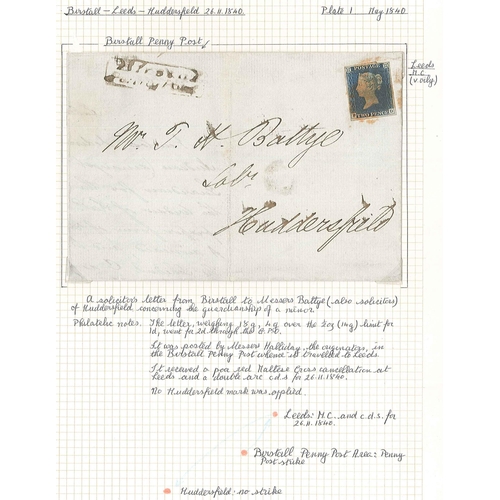 Birstall - Leeds - Huddersfield 26.11.1840. Plate 1 May 1840
Birstall Penny Post
Leeds
M.C.
(v. oily)
POSTAGE
TWO PENCE
Mr. T. H. Battye
Solr.
Huddersfield
A solicitors letter from Birstall to Messers Battye (also solicitors)
of Huddersfield concerning the guardianship of a minor.
Philatelic notes. The letter, weighing 18g, 4g over the ½oz (14g) limit for
1d, went for 2d through the G.P.O.
It was posted by Messers Halliday, the originators, in
the Birstall Penny Post whence it travelled to Leeds.
It received a poor red Maltese Cross cancellation at
Leeds and a double arc c.d.s for 26.11.1840.
No Huddersfield mark was applied.
Leeds: M.C. and c.d.s. for
26.11.1840.
Birstall Penny Post Area: Penny
Post strike
Huddersfield: no strike